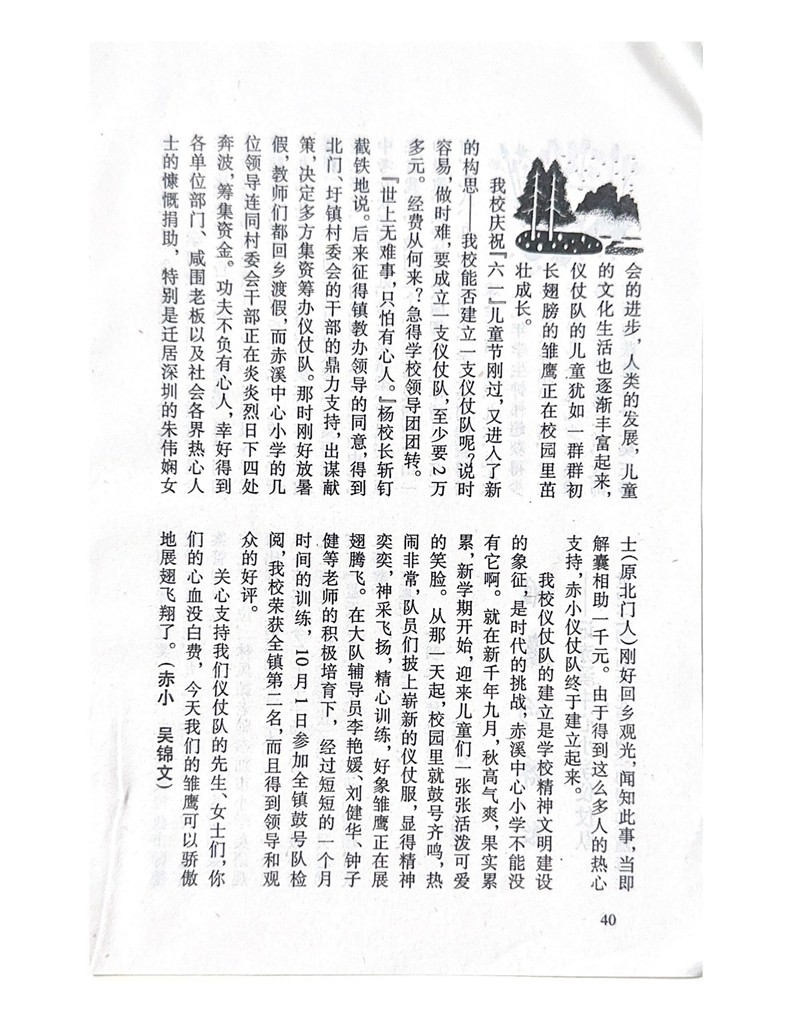 会的进步，人类的发展，儿童
的文化生活也逐渐丰富起来，
仪仗队的儿童犹如一群群初
长翅膀的雏鹰正在校园里茁
壮成长。
我校庆祝『六一』儿童节刚过，又进入了新
的构思——我校能否建立一支仪仗队呢？说时
容易，做时难，要成立一支仪仗队，至少要2万
多元。经费从何来？急得学校领导团团转。
『世上无难事，只怕有心人。』杨校长斩钉
截铁地说。后来征得镇教办领导的同意，得到
北门、圩镇村委会的干部的鼎力支持，出谋献
策，决定多方集资筹办仪仗队。那时刚好放暑
假，教师们都回乡渡假，而赤溪中心小学的几
位领导连同村委会干部正在炎炎烈日下四处
奔波，筹集资金。功夫不负有心人，幸好得到
各单位部门、咸围老板以及社会各界热心人
士的慷慨捐助，特别是迁居深圳的朱伟娴女
士（原北门人）刚好回乡观光，闻知此事，当即
解囊相助一千元。由于得到这么多人的热心
支持，赤小仪仗队终于建立起来。
我校仪仗队的建立是学校精神文明建设
的象征，是时代的挑战，赤溪中心小学不能没
有它啊。就在新千年九月，秋高气爽，果实累
累，新学期开始，迎来儿童们一张张活泼可爱
的笑脸。从那一天起，校园里就鼓号齐鸣，热
闹非常，队员们披上崭新的仪仗服，显得精神
奕奕，神采飞扬，精心训练，好象雏鹰正在展
翅腾飞。在大队辅导员李艳媛、刘健华、钟子
健等老师的积极培育下，经过短短的一个月
时间的训练，10月1日参加全镇鼓号队检
阅，我校荣获全镇第二名，而且得到领导和观
众的好评。
关心支持我们仪仗队的先生、女士们，你
们的心血没白费，今天我们的雏鹰可以骄傲
地展翅飞翔了。（赤小　吴锦文）
40